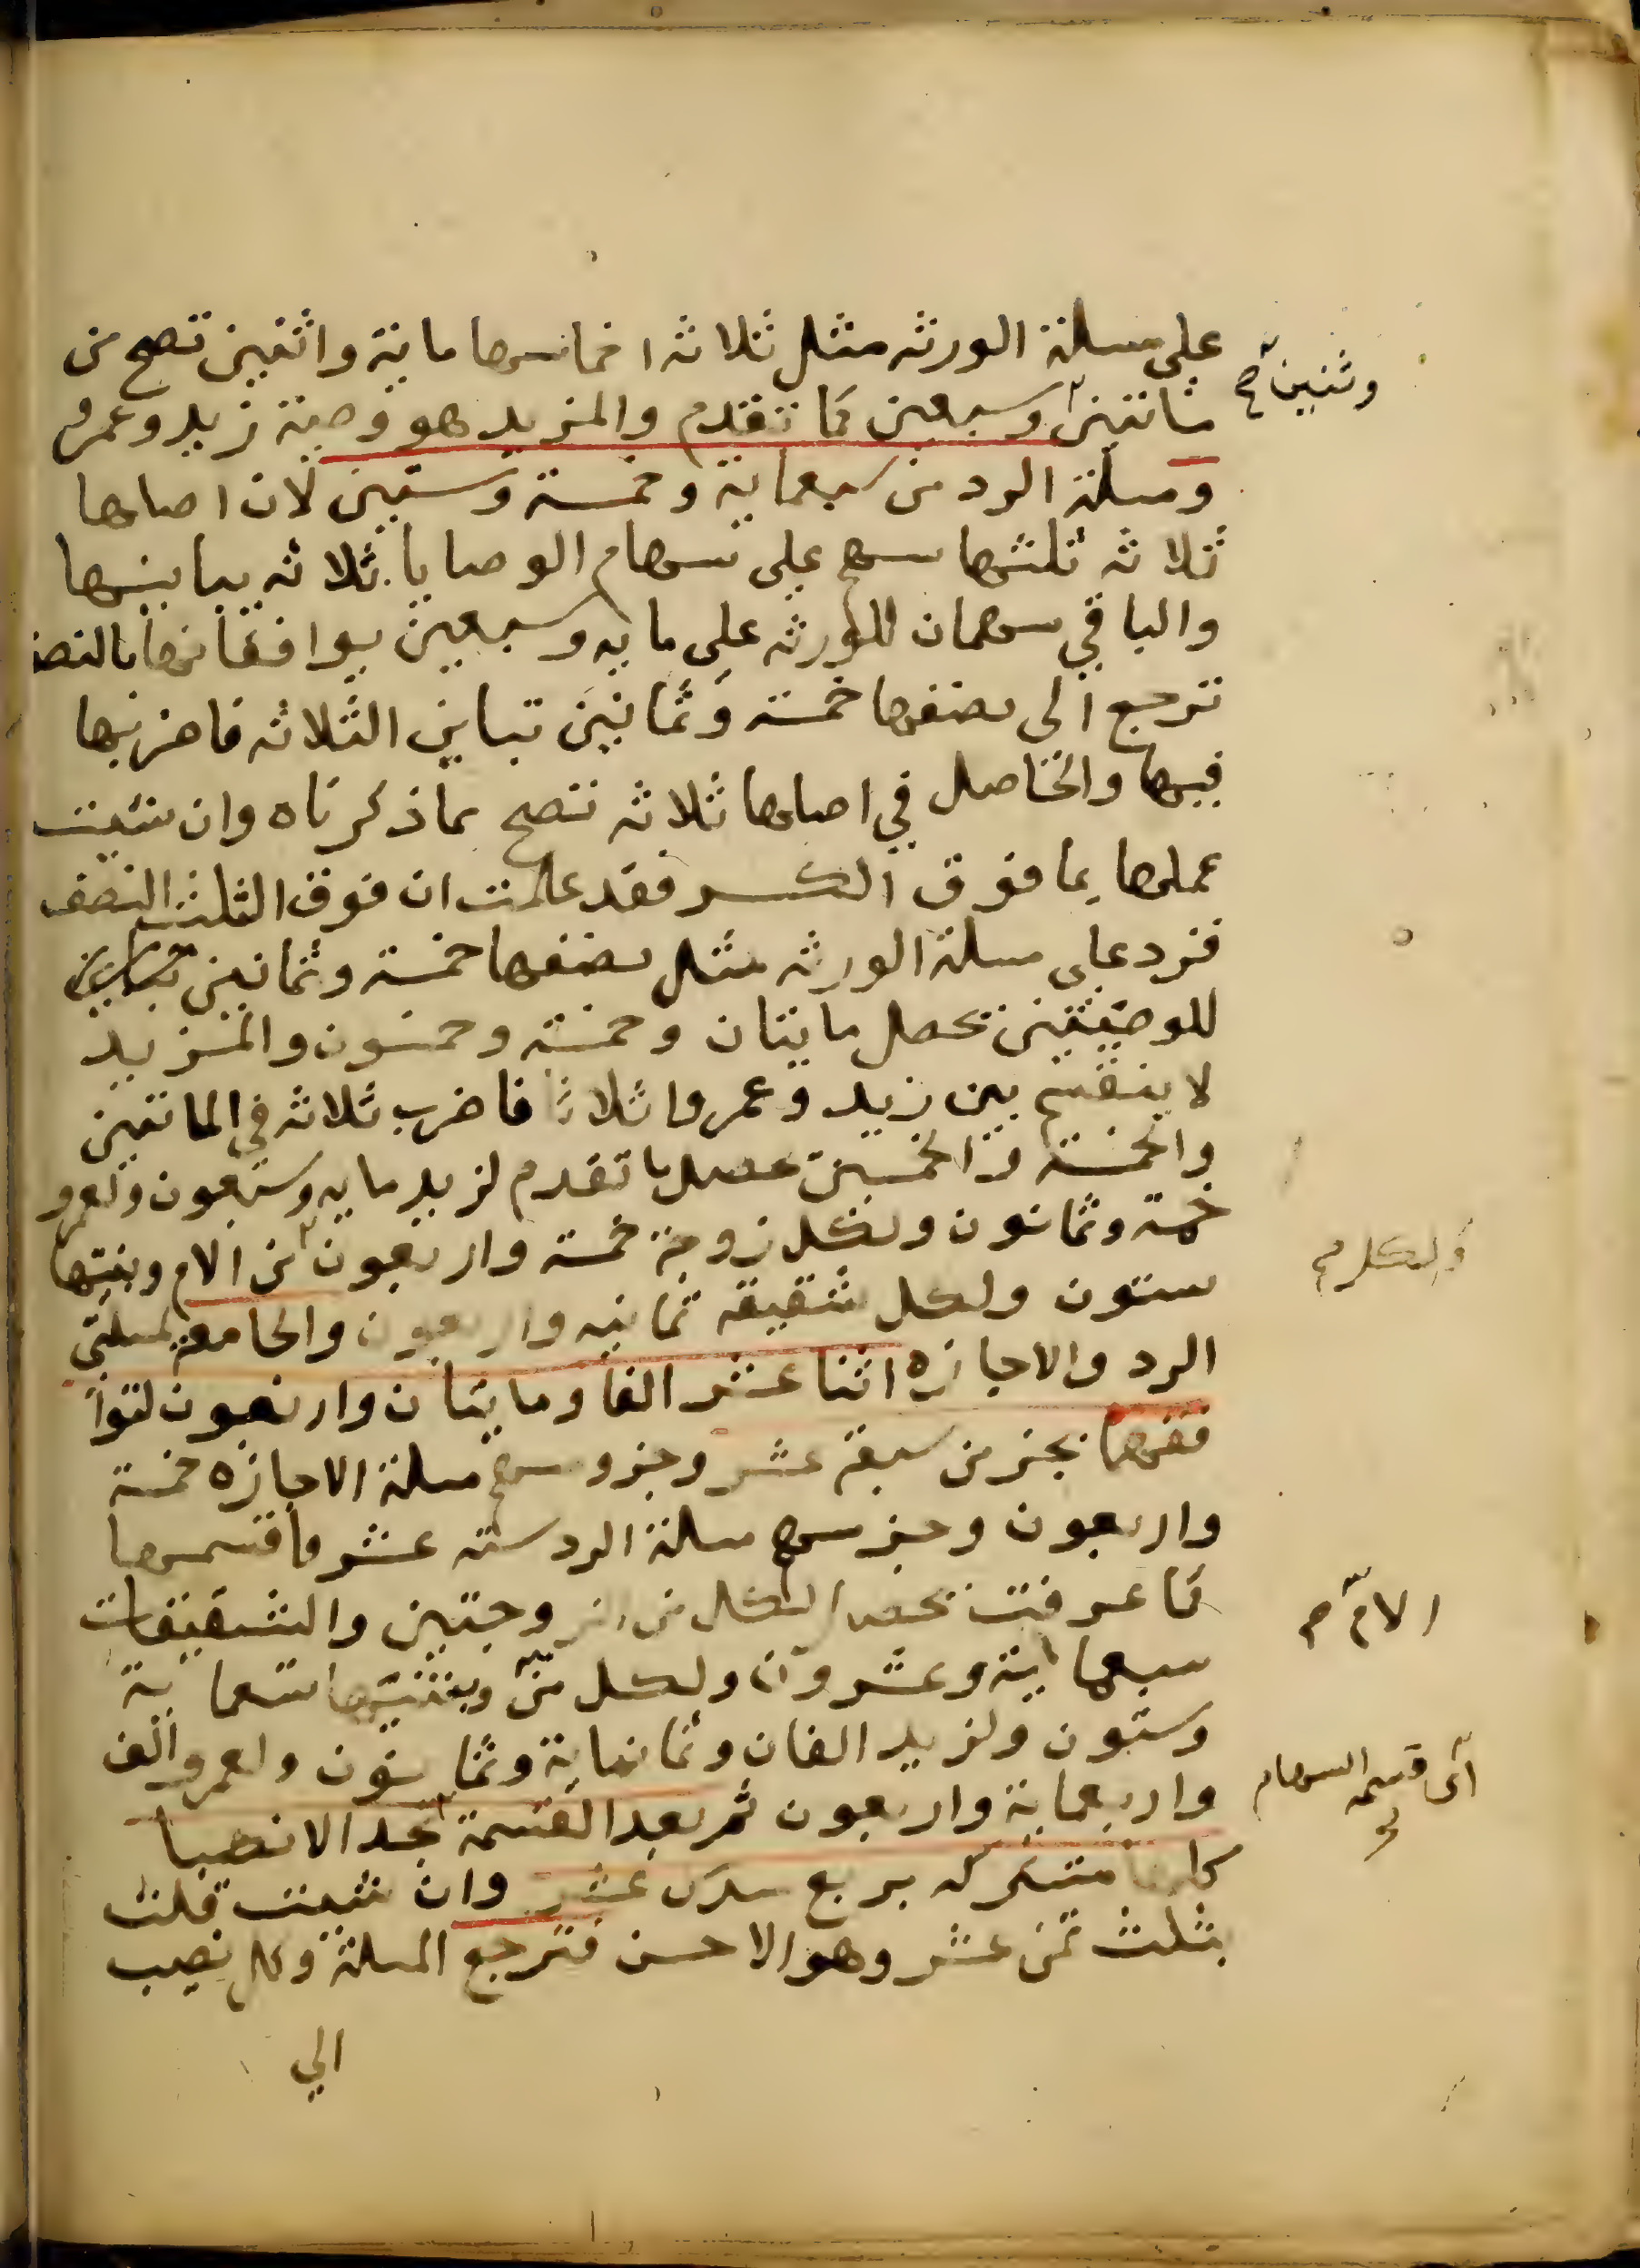 على مسلة الورثه مثل ثلاثه اخماسها ماية واثنين تصح من
وثنين صح
مائتين وسبعين كما تقدم والمزيد هو وصية زيد وعمرو
ومسلة الرد من سبعماية وخمسة وستين لان اصلها
ثلاثه ثلثها سهم على سهام الوصايا ثلاثه يباينها
والباقي سهمان للورثه على مايه وسبعين يوافقانها بالنصف
ترجع الى نصفها خمسة وثمانين تباين الثلاثه فاضربها
فيها والحاصل في اصلها ثلاثه تصح مما ذكرناه وان شئت
عملها بما فوق الكسر فقد علمت ان فوق الثلث النصف
فزد على مسلة الورثه مثل نصفها خمسة وثمانين
للوصيتين يحصل مايتان وخمسة وخمسون والمزيد
لا ينقسم بين زيد وعمرو اثلاثا فاضرب ثلاثه في المائتين
والخمسة والخمسين يحصل ما تقدم لزيد مايه وسبعون ولعمرو
خمسة وثمانون ولكل زوجة خمسة واربعون من الام وبنتها
ولكل م
ستون ولكل شقيقه ثمانيه واربعون والجامعة لمسلتي
الرد والاجازه اثنا عشر الفا ومايتان واربعون لتوا
فقهما بجزء من سبعة عشر وجزو سهم مسلة الاجازه خمسة
واربعون وجزء سهم مسلة الرد سته عشر فاقسمها
كما عرفت يحصل لكل من الزوجتين والشقيقات
سبعماية وعشرون ولكل من وبنتيها تسعماية
الام صح
وستون ولزيد الفان وثمانماية وثمانون ولعمرو الف
واربعماية واربعون ثم بعد القسمة تجد الانصبا
اى قسمة السهام
كلها مشتركه بربع سدس عشر وان شئت قلت
بثلث ثمن عشر وهو الاحسن فترجع المسلة وكل نصيب
الي